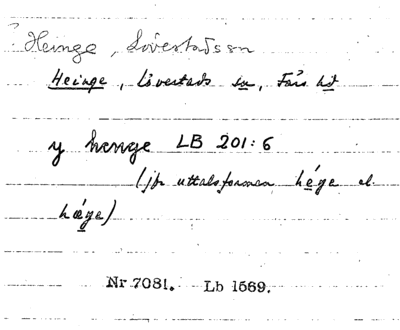 Heinge, Lövestads sn
Heinge, Lövestads sn, Färs hd
y henge LB 201:6
(jfr uttalsformen hége el.
hǽge)
Nr 7081. Lb 1569.